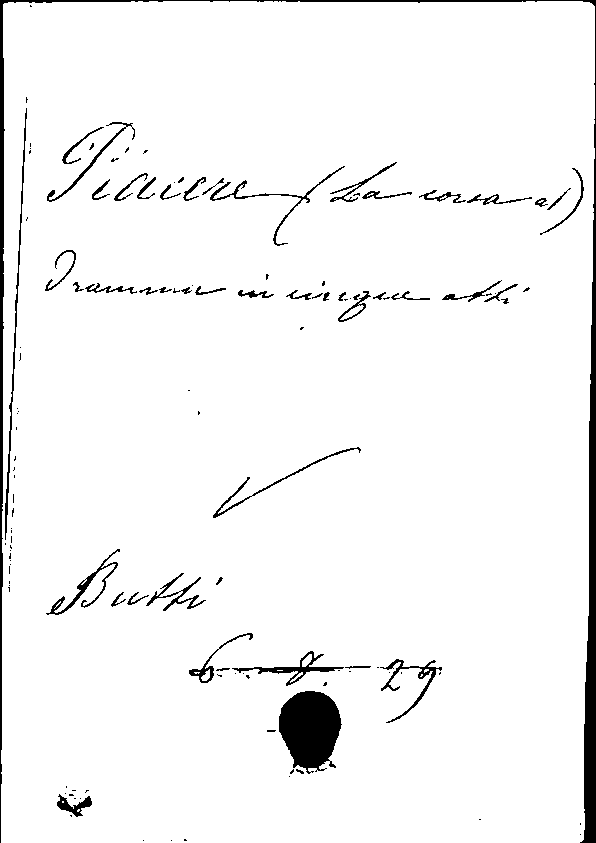 Piacere (La corsa al)
Dramma in cinque atti
Butti
6. 8. 29